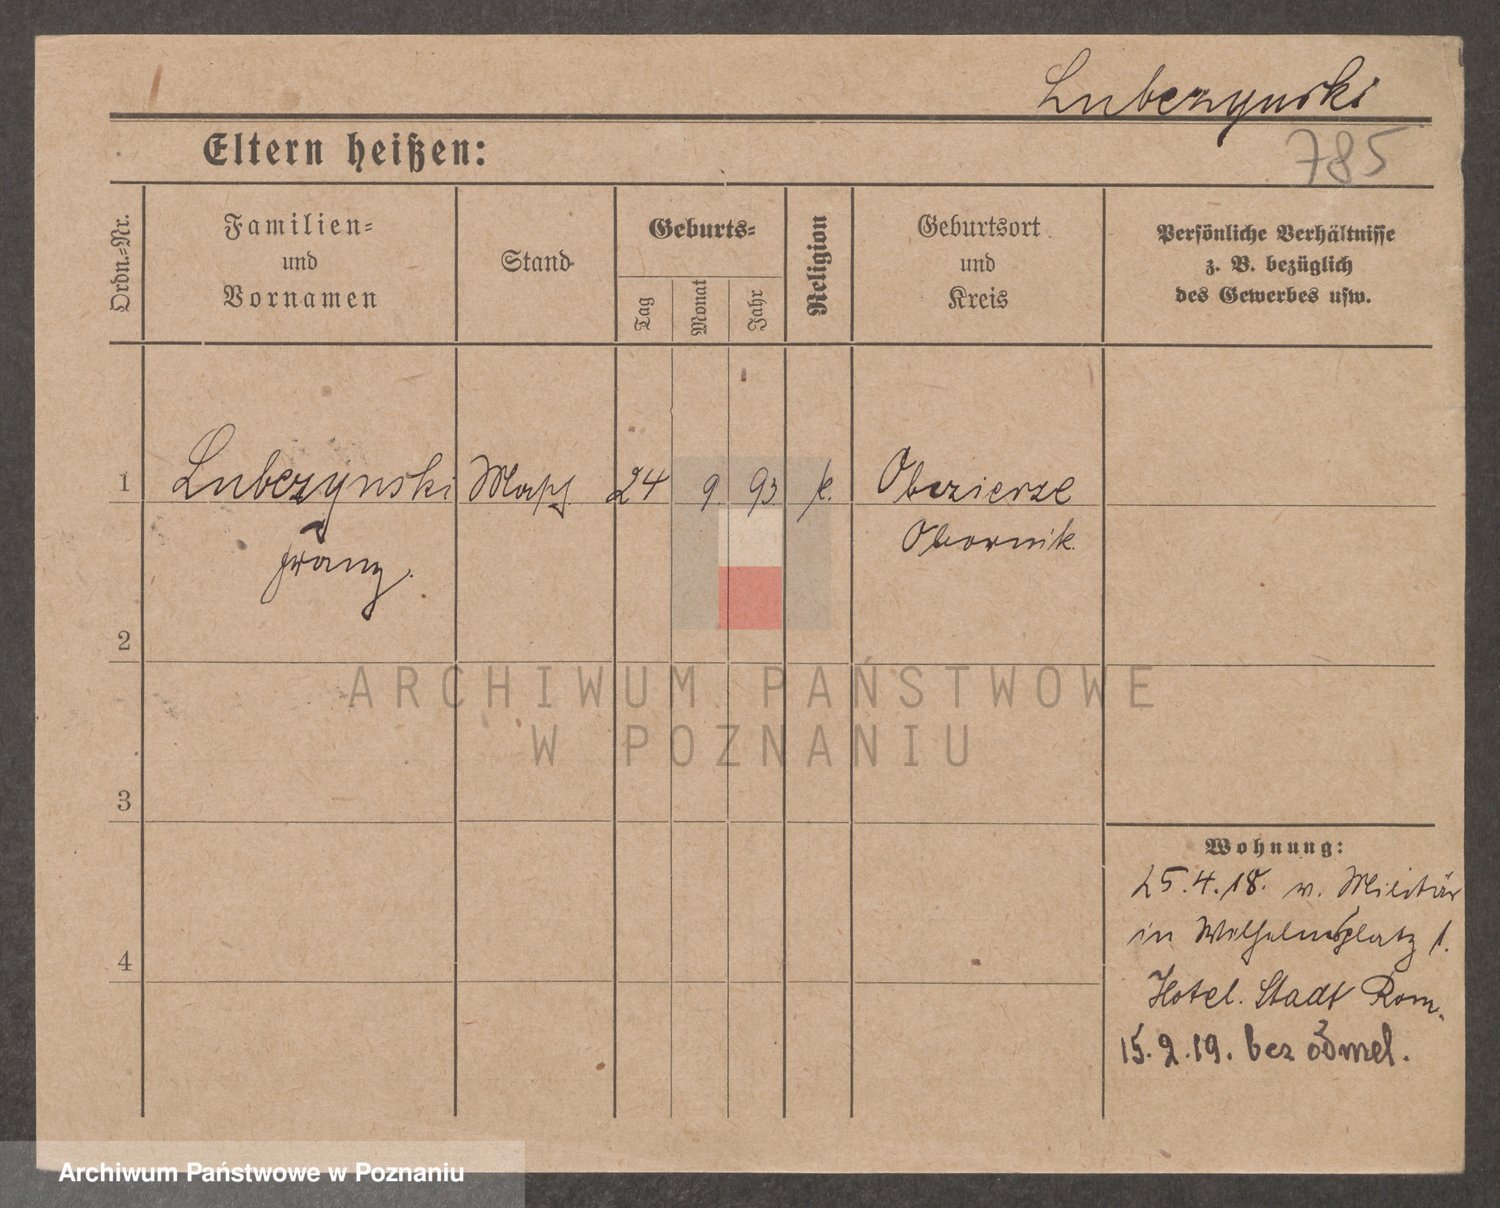 Lubczynski
785
Eltern heißen:
Ordn.-Nr.
Familien-
und
Vornamen
Stand
Geburts-
Tag
Monat
Jahr
Religion
Geburtsort
und
Kreis
Persönliche Verhältnisse
z. B. bezüglich
des Gewerbes usw.
1 Lubczynski 24 9. 93. k. Obezierze
Franz. Obornik.
2
3
4
Wohnung:
25.4.18. v. Militär
in Wilhelmsplatz 1.
Hotel. Stadt Rom.
15.2.19. bez odmel.
ARCHIWUM PAŃSTWOWE
W POZNANIU
Archiwum Państwowe w Poznaniu